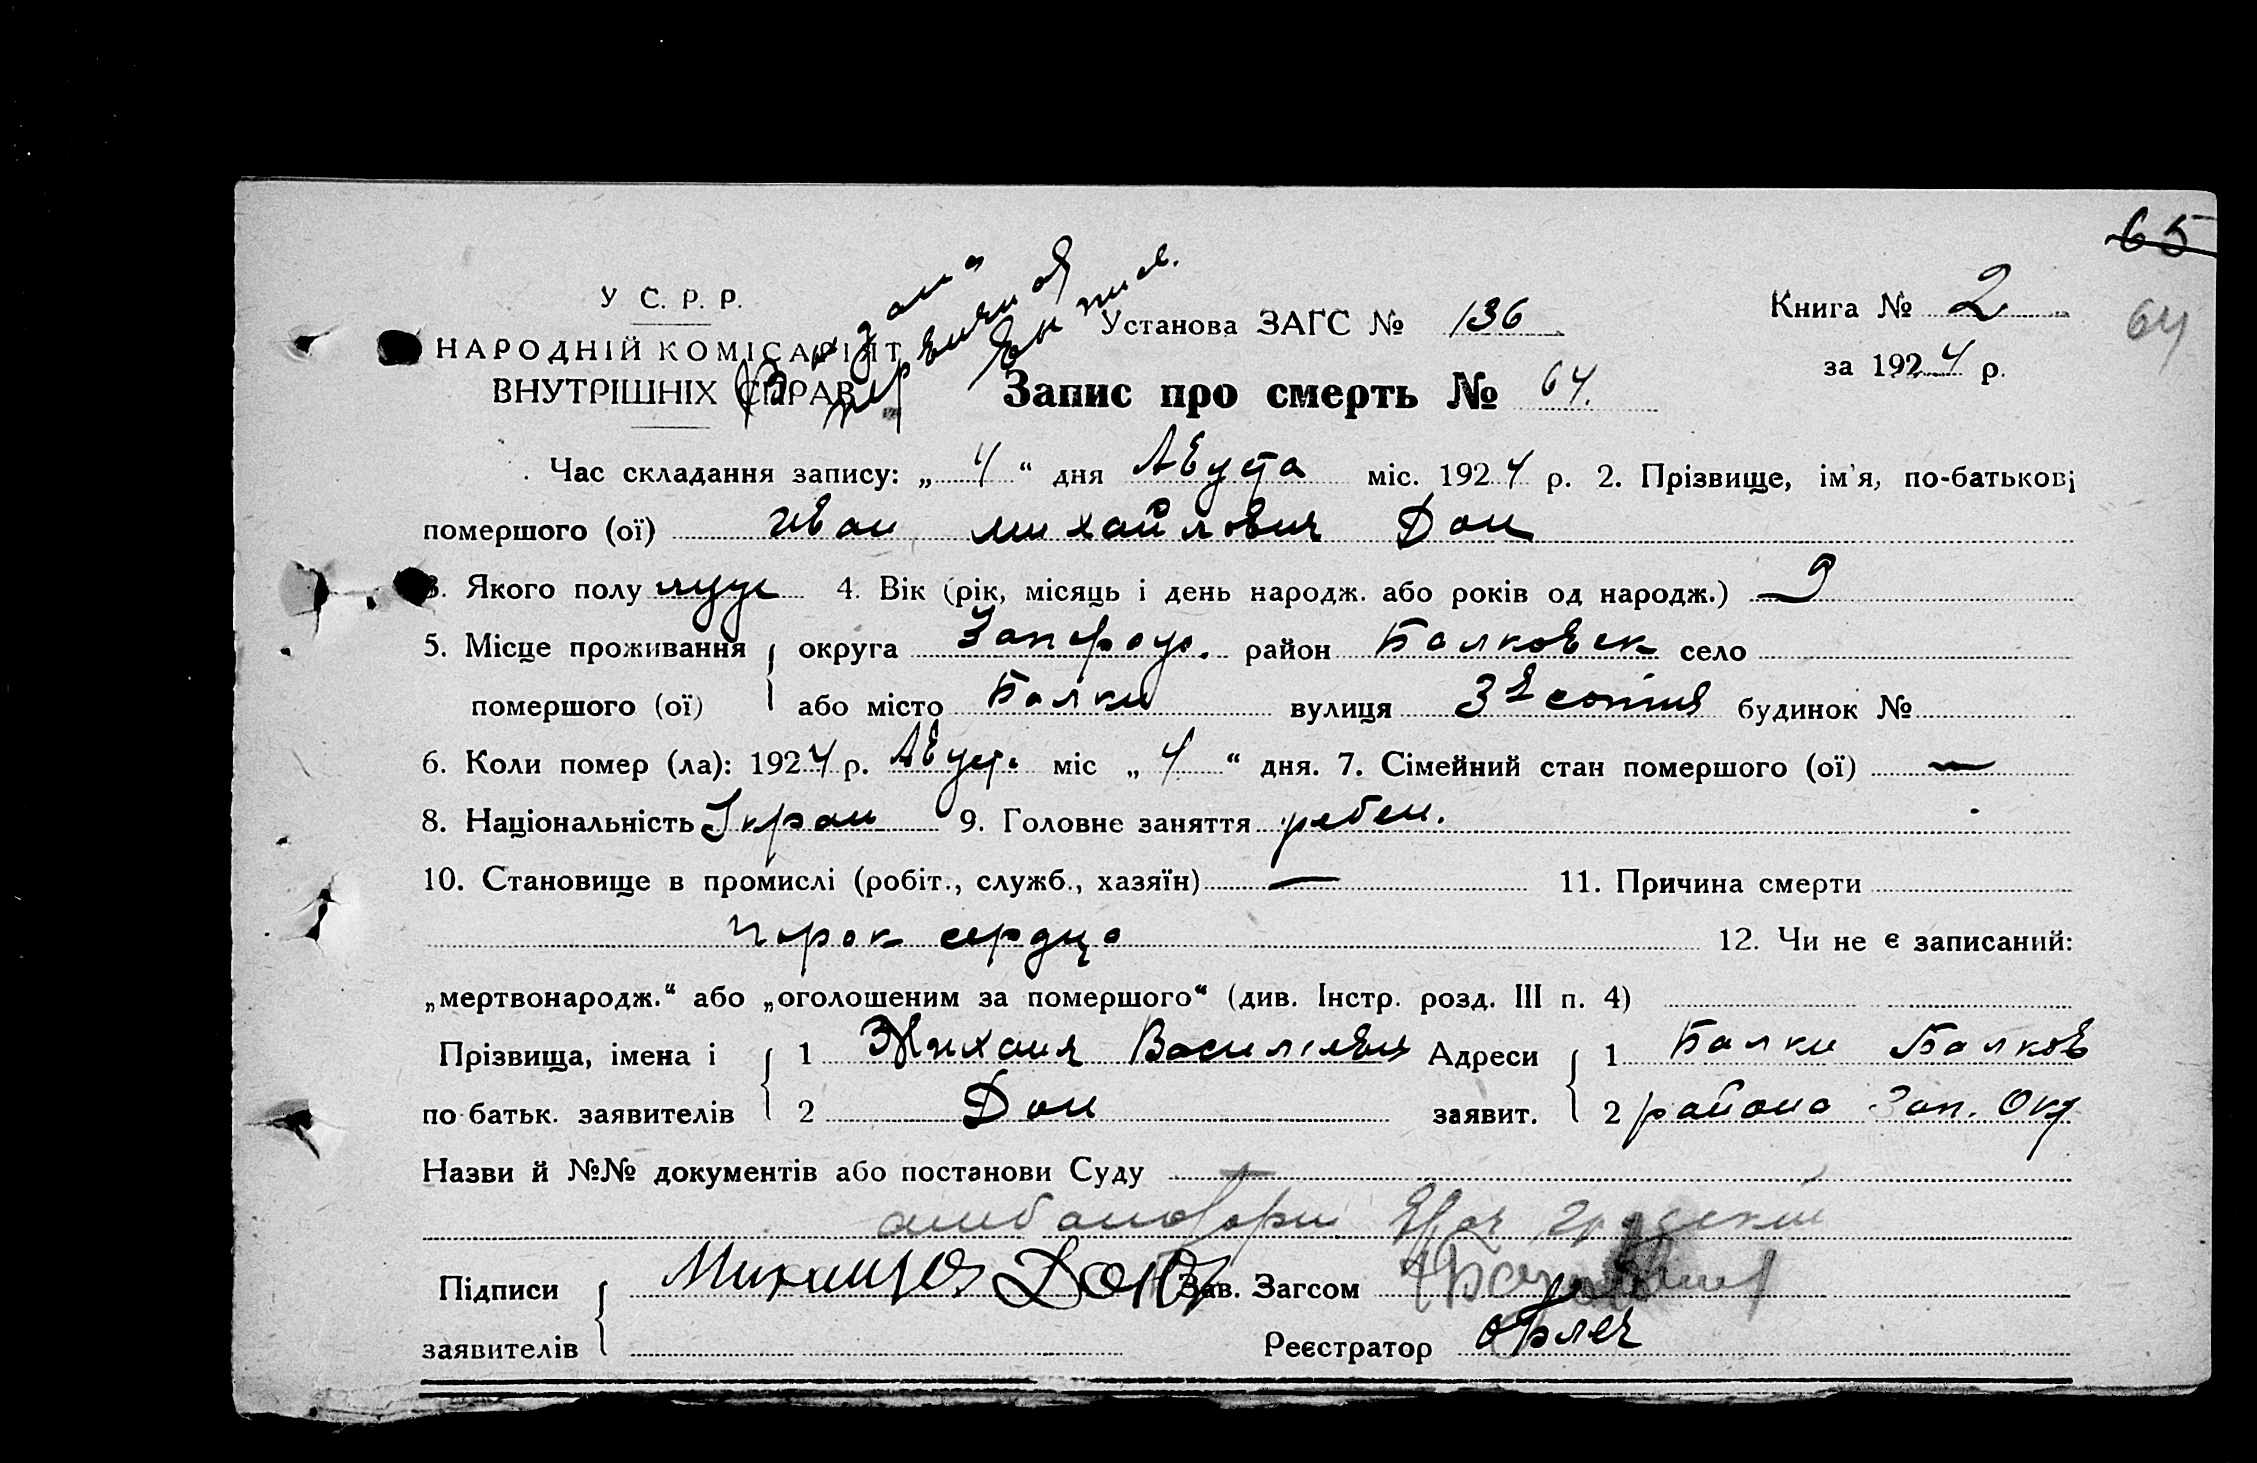 65
У С. Р. Р.
НАРОДНІЙ КОМІСАРІЯТ
ВНУТРІШНІХ СПРАВ
Установа ЗАГС № 136
Книга № 2
за 1924 р.
64
Запис про смерть № 64.
Час складання запису: „ 4 “ дня Августа міс. 1924 р. 2. Прізвище, ім'я, по-батькові
помершого (ої) Иван Михайлович Дон
3. Якого полу муж 4. Вік (рік, місяць і день народж. або років од народж.) 9
5. Місце проживання округа Запорож. район Балковск село
помершого (ої) або місто Балки вулиця 3я сотня будинок №
6. Коли помер (ла): 1924 р. Август. міс „ 4 “ дня. 7. Сімейний стан помершого (ої) —
8. Національність Украин 9. Головне заняття ребен.
10. Становище в промислі (робіт., служб., хазяїн) — 11. Причина смерти
порок сердца 12. Чи не є записаний:
„мертвонародж.“ або „оголошеним за помершого“ (див. Інстр. розд. III п. 4)
Прізвища, імена і 1 Михаил Васильевич Адреси 1 Балки Балков
по-батьк. заявителів 2 Дон заявит. 2 района Зап. Окр
Назви й №№ документів або постанови Суду
амбулатории Врач
Підписи Дон Зав. Загсом
заявителів Реєстратор